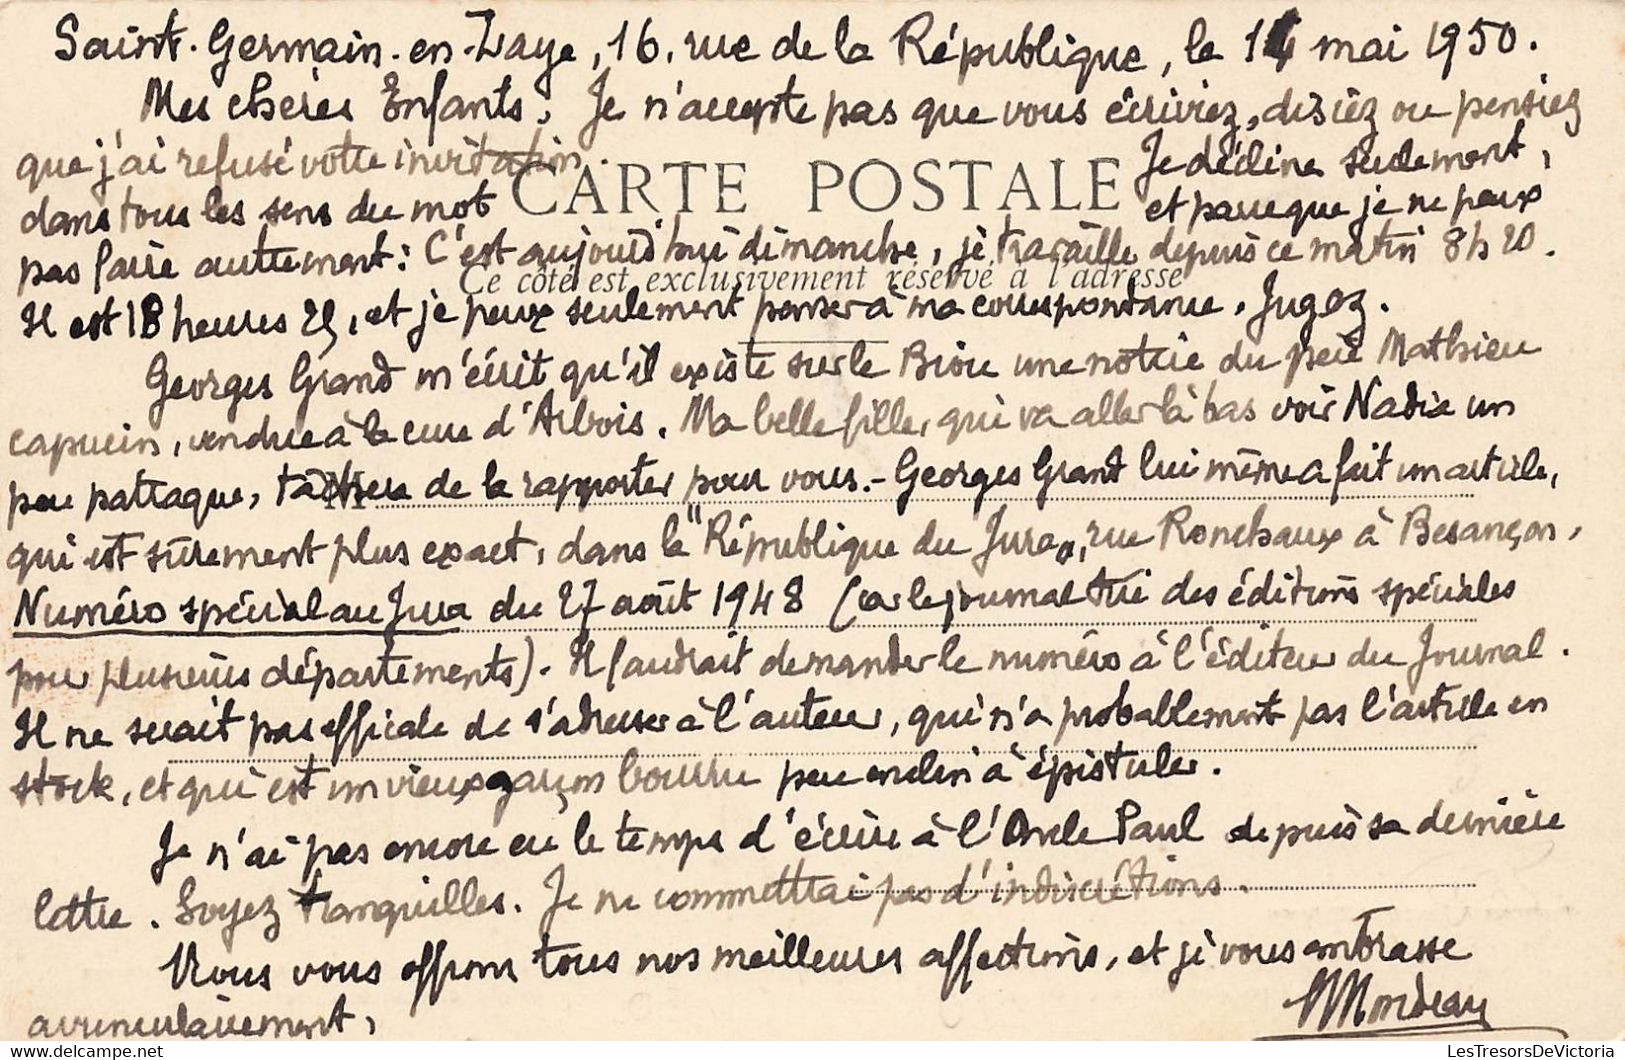 Saint-Germain-en-Laye, 16, rue de la République, le 14 mai 1950.
Mes chères Enfants, Je n'accepte pas que vous écriviez, disiez ou pensiez
que j'ai refusé votre invitation. Je décline seulement,
CARTE POSTALE
dans tous les sens du mot et parce que je ne peux
pas faire autrement : C'est aujourd'hui dimanche, je travaille depuis ce matin 8h20.
Ce côté est exclusivement réservé à l'adresse
Il est 18 heures 25, et je peux seulement penser à ma correspondance. Jugez.
Georges Grand m'écrit qu'il existe sur le Briou une notice du père Mathieu
capucin, vendue à la cure d'Arbois. Ma belle fille, qui va aller là bas voir Nadia un
peu patraque, tâchera de la rapporter pour vous. - Georges Grand lui même a fait un article,
M
qui est sûrement plus exact, dans la "République du Jura", rue Ronchaux à Besançon,
Numéro spécial au Jura du 27 août 1948 (car le journal tire des éditions spéciales
pour plusieurs départements). Il faudrait demander le numéro à l'éditeur du Journal.
Il ne serait pas efficace de s'adresser à l'auteur, qui n'a probablement pas l'article en
stock, et qui est un vieux garçon bourru peu enclin à épistuler.
Je n'ai pas encore eu le temps d'écrire à l'Oncle Paul depuis sa dernière
lettre. Soyez tranquilles. Je ne commettrai pas d'indiscrétions.
Nous vous offrons tous nos meilleures affections, et je vous embrasse
avunculairement,
LesTresorsDeVictoria